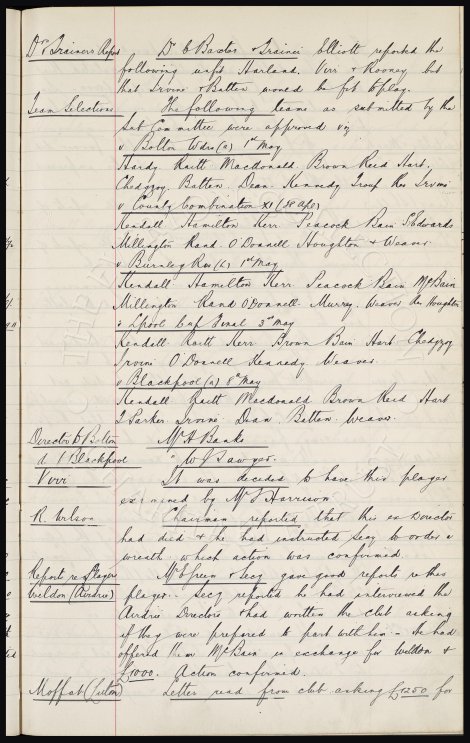 Drs & Trainers Report Dr C Baxter & Trainer Elliott reported the
following unfit Harland, Virr & Rooney but
that Irvine & Batten would be fit to play.
Team Selections The following teams as submitted by the
Sub Committee were approved viz
v Bolton Wdrs (a) 1st May
Hardy. Raitt Macdonald. Brown Reid Hart.
Chedgzoy. Batten. Dean. Kennedy Troup Res Irvine
v County Combination XI (28 Apl)
Kendall. Hamilton Kerr. Peacock Bain S Edwards
Millington Rand. O'Donnell Houghton & Weaver
v Burnley Res (h) 1st May
Kendall Hamilton Kerr. Peacock Bain McBain
Millington Rand O'Donnell. Murray. Weaver Res Houghton
v Lpool Cup Final 3rd May
Kendall Raitt Kerr Brown Bain Hart Chedgzoy
Irvine O'Donnell Kennedy Weaver
v Blackpool (a) 8th May
Kendall Raitt Macdonald Brown Reid Hart
J Parker. Irvine Dean. Batten Weaver.
Director to Bolton Mr H Banks
d. Blackpool " W J Sawyer.
Virr It was decided to have this player
examined by Mr Harrison
R. Wilson Chairman reported that this ex Director
had died & he had instructed Secy to order a
wreath which action was confirmed.
Reports re Players Mr Green & Secy gave good reports re this
Weldon (Airdrie) player. Secy reported he had interviewed the
Airdrie Directors & had written the club asking
if they were prepared to part with him – he had
offered them McBain in exchange for Weldon &
£1000. Action confirmed.
Moffat (Luton) Letter read from club asking £1250 for